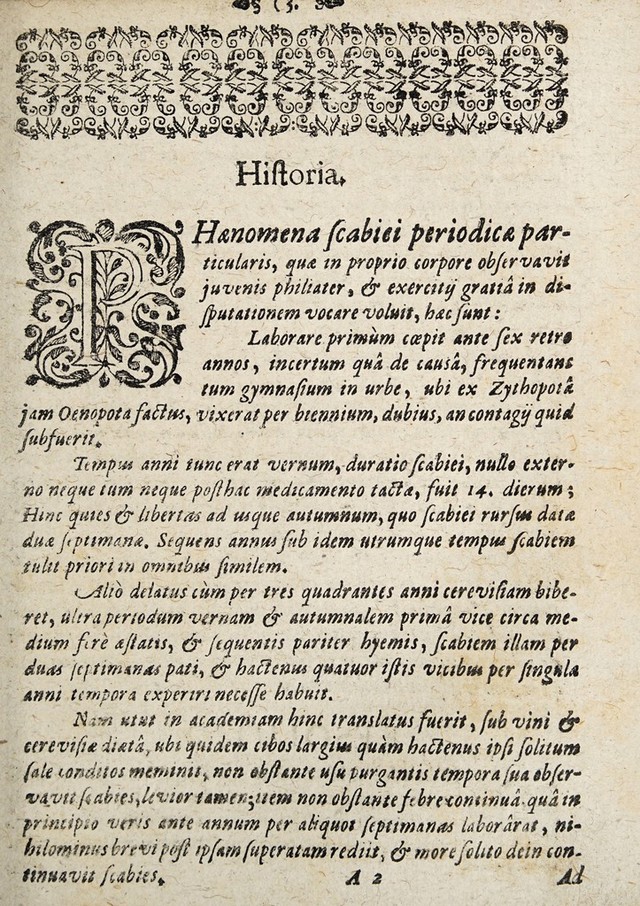 ( 3. )
Hiſtoria.
PHænomena ſcabiei periodicæ par-
ticularis, quæ in proprio corpore obſervavit
juvenis philiater, & exercitij gratiâ in di-
ſputationem vocare voluit, hæc ſunt:
Laborare primùm cœpit ante ſex retro
annos, incertum quâ de cauſâ, frequentans
tum gymnaſium in urbe, ubi ex Zythopotâ
jam Oenopota factus, vixerat per biennium, dubius, an contagij quid
ſubfuerit.
Tempus anni tunc erat vernum, duratio ſcabiei, nullo exter-
no neque tum neque poſthac medicamento tactæ, fuit 14. dierum;
Hinc quies & libertas ad usque autumnum, quo ſcabiei rurſus datæ
duæ ſeptimanæ. Sequens annus ſub idem utrumque tempus ſcabiem
tulit priori in omnibus ſimilem.
Aliò delatus cùm per tres quadrantes anni cereviſiam bibe-
ret, ultra periodum vernam & autumnalem primâ vice circa me-
dium ferè æſtatis, & ſequentis pariter hyemis, ſcabiem illam per
duas ſeptimanas pati, & hactenus quatuor iſtis vicibus per ſingula
anni tempora experiri neceſſe habuit.
Nam utut in academiam hinc translatus fuerit, ſub vini &
cereviſiæ diætâ, ubi quidem cibos largius quàm hactenus ipſi ſolitum
ſale conditos meminit, non obſtante uſu purgantis tempora ſua obſer-
vavit ſcabies, levior tamen; item non obſtante febre continuâ, quâ in
principio veris ante annum per aliquot ſeptimanas laborârat, ni-
hilominus brevi poſt ipſam ſuperatam rediit, & more ſolito dein con-
tinuavit ſcabies.
A 2 Ad